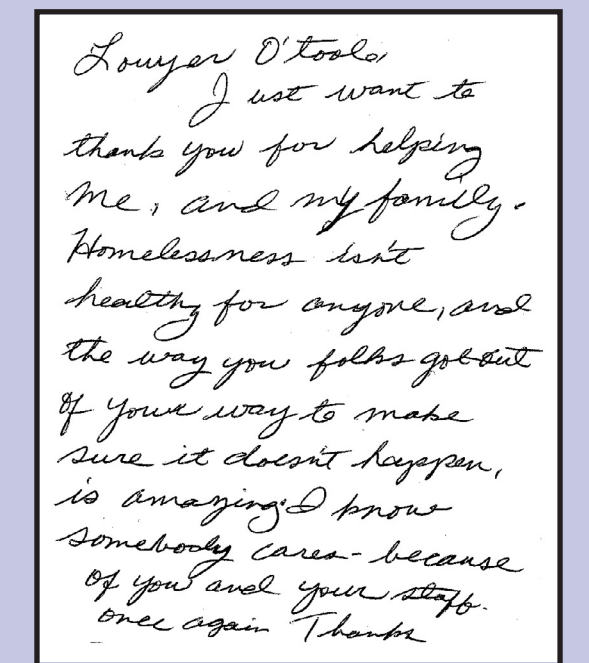 Lowyer O'toole,
I just want to
thank you for helping
me, and my family.
Homelessness isn't
healthy for anyone, and
the way you folks got out
of your way to make
sure it doesn't happen,
is amazing. I know
somebody cares - because
of you and your staff.
once again Thanks